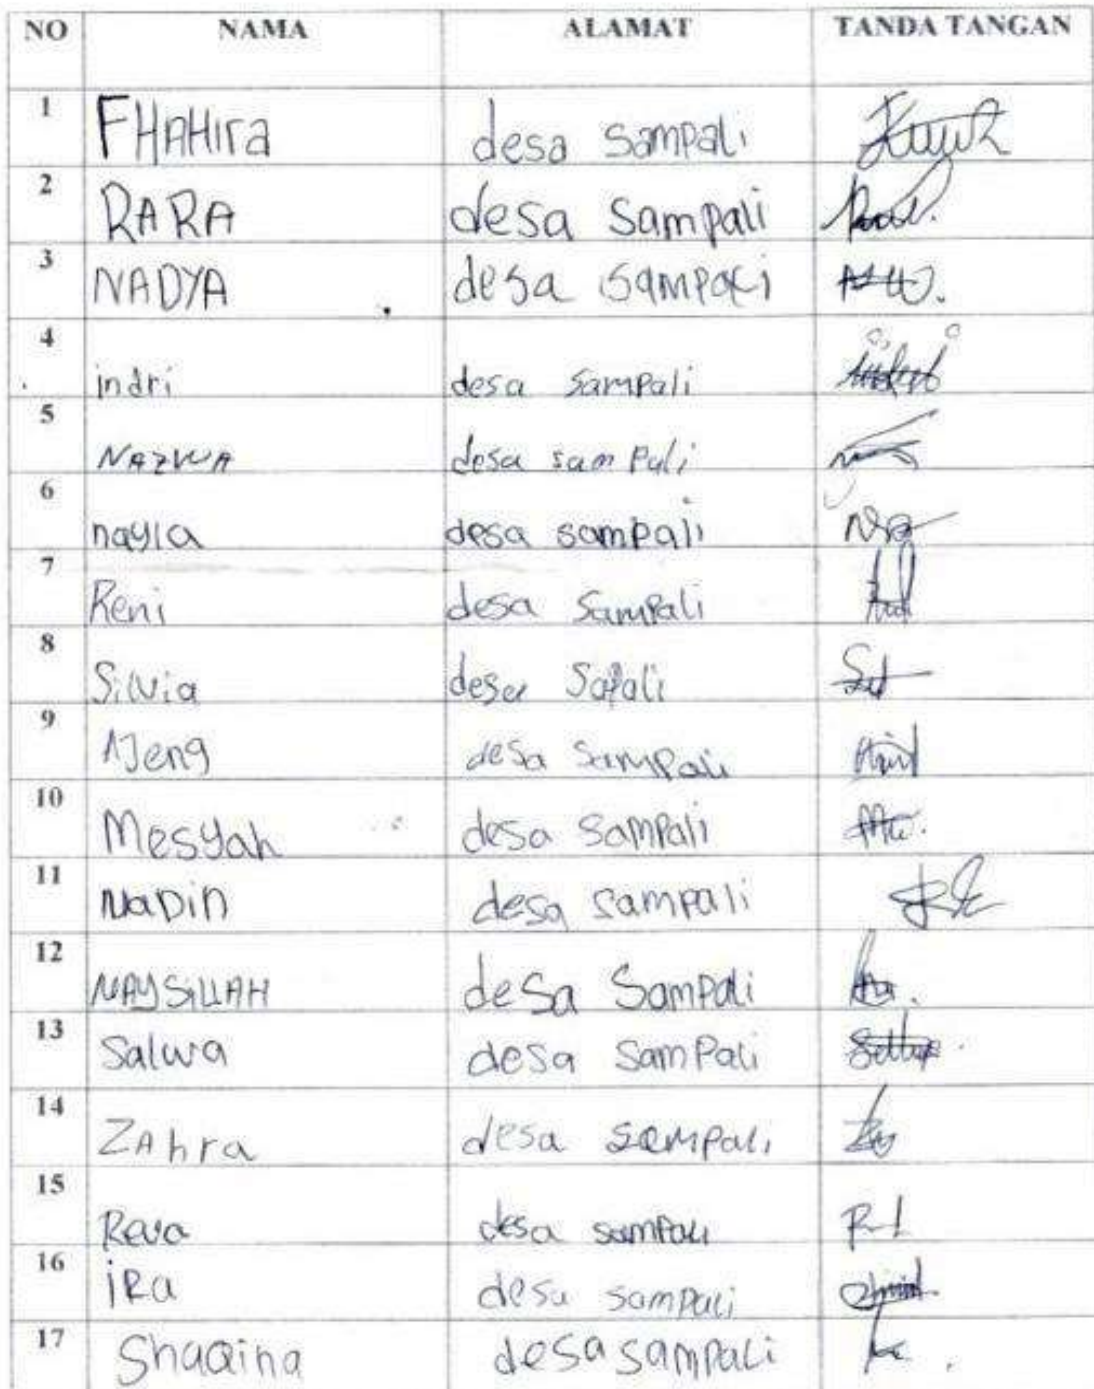 NO NAMA ALAMAT TANDA TANGAN
1 FHAHIra desa sampali
2 RARA desa sampali
3 NADYA desa sampali
4 indri desa sampali
5 NAZWA desa sampali
6 nayla desa sampali
7 Reni desa sampali
8 Silvia desa Sapali
9 AJeng desa sampali
10 Mesyah desa sampali
11 NaDin desa sampali
12 NAYSILLAH desa Sampali
13 Salwa desa samPali
14 ZAhra desa sampali
15 Reva desa sampali
16 iRa desa sampali
17 ShaQina desa sampali